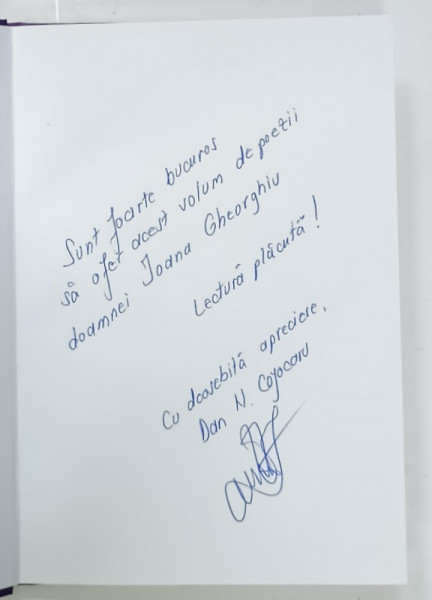 Sunt foarte bucuros
să ofer acest volum de poezii
doamnei Ioana Gheorghiu
Lectură plăcută!
Cu deosebită apreciere,
Dan N. Cojocaru